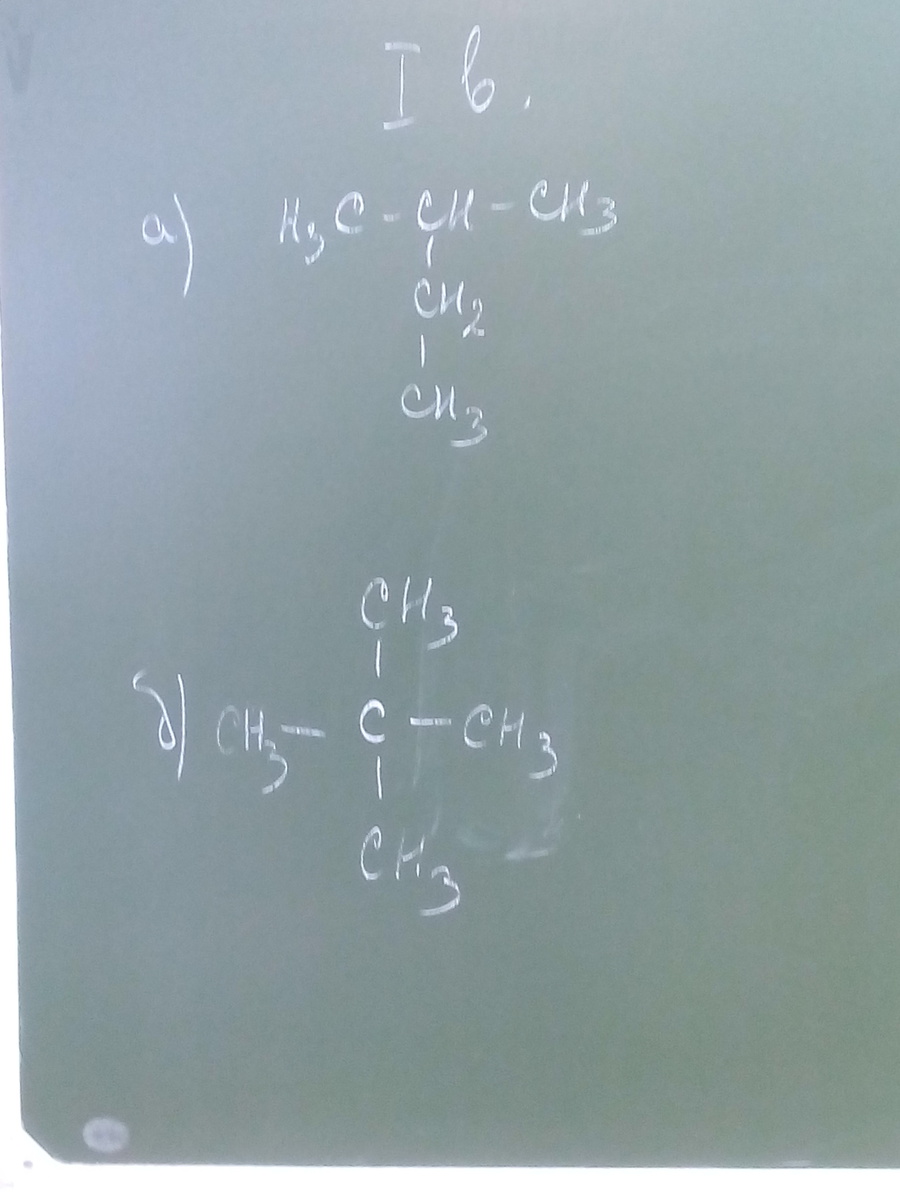 I в.
а) H3C - CH - CH3
|
CH2
|
CH3
CH3
|
б) CH3 — C — CH3
|
CH3